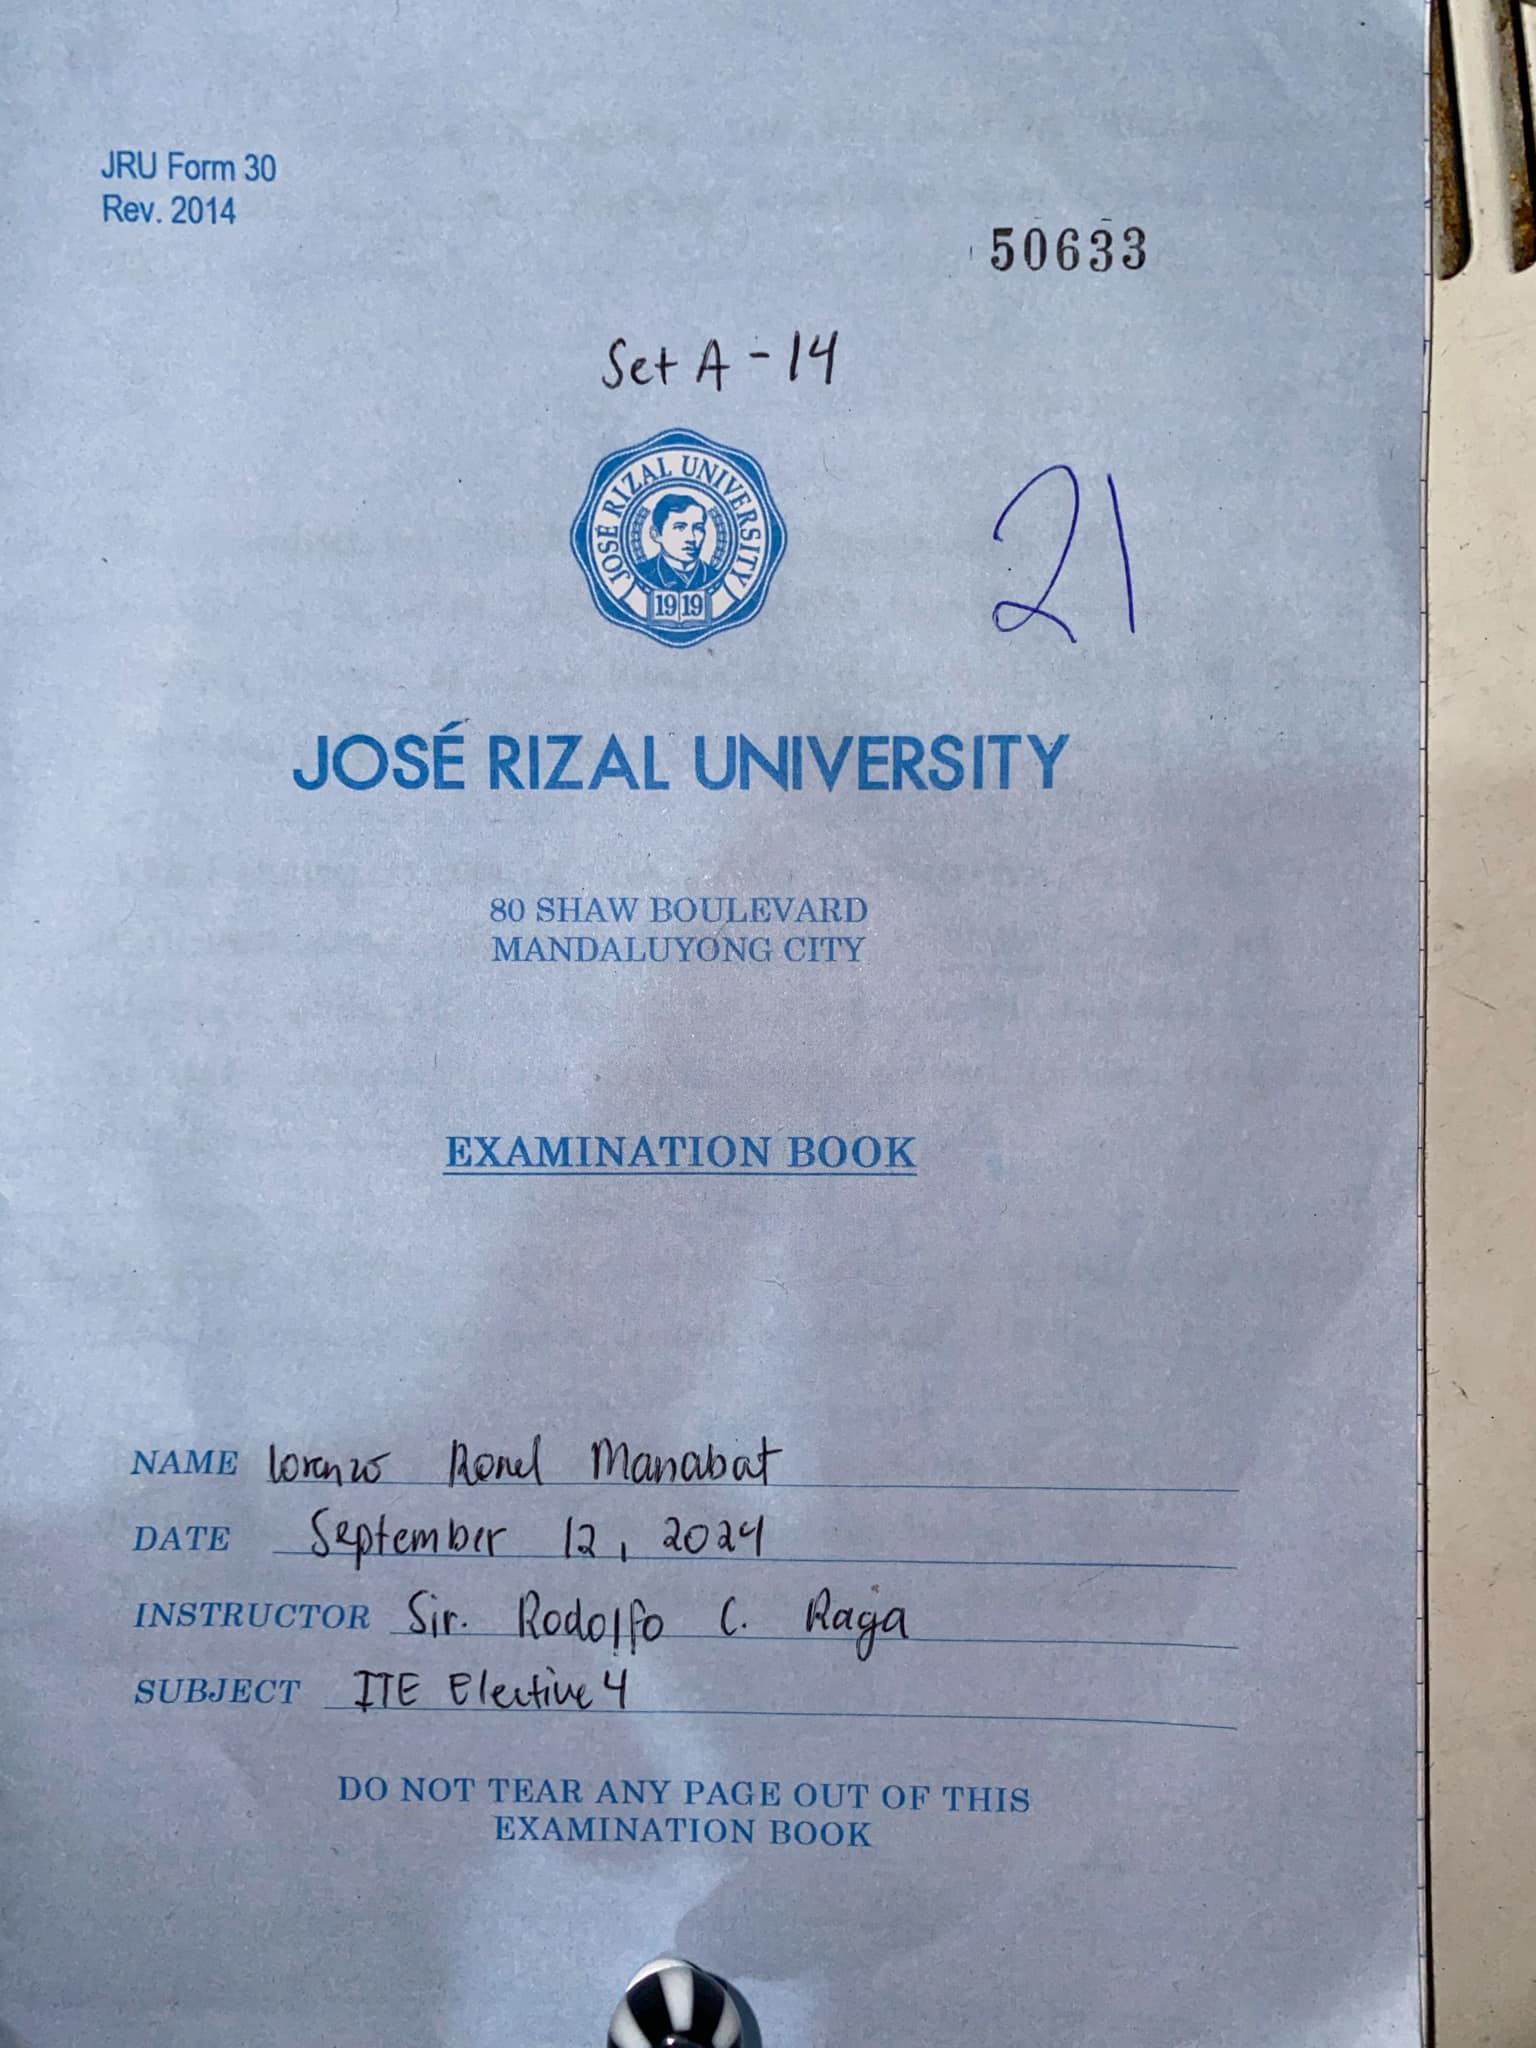 JRU Form 30
Rev. 2014
50633
Set A - 14
JOSÉ RIZAL UNIVERSITY
1919
21
JOSÉ RIZAL UNIVERSITY
80 SHAW BOULEVARD
MANDALUYONG CITY
EXAMINATION BOOK
NAME Lorenzo Ronel Manabat
DATE September 12, 2024
INSTRUCTOR Sir. Rodolfo C. Raga
SUBJECT ITE Elective 4
DO NOT TEAR ANY PAGE OUT OF THIS
EXAMINATION BOOK